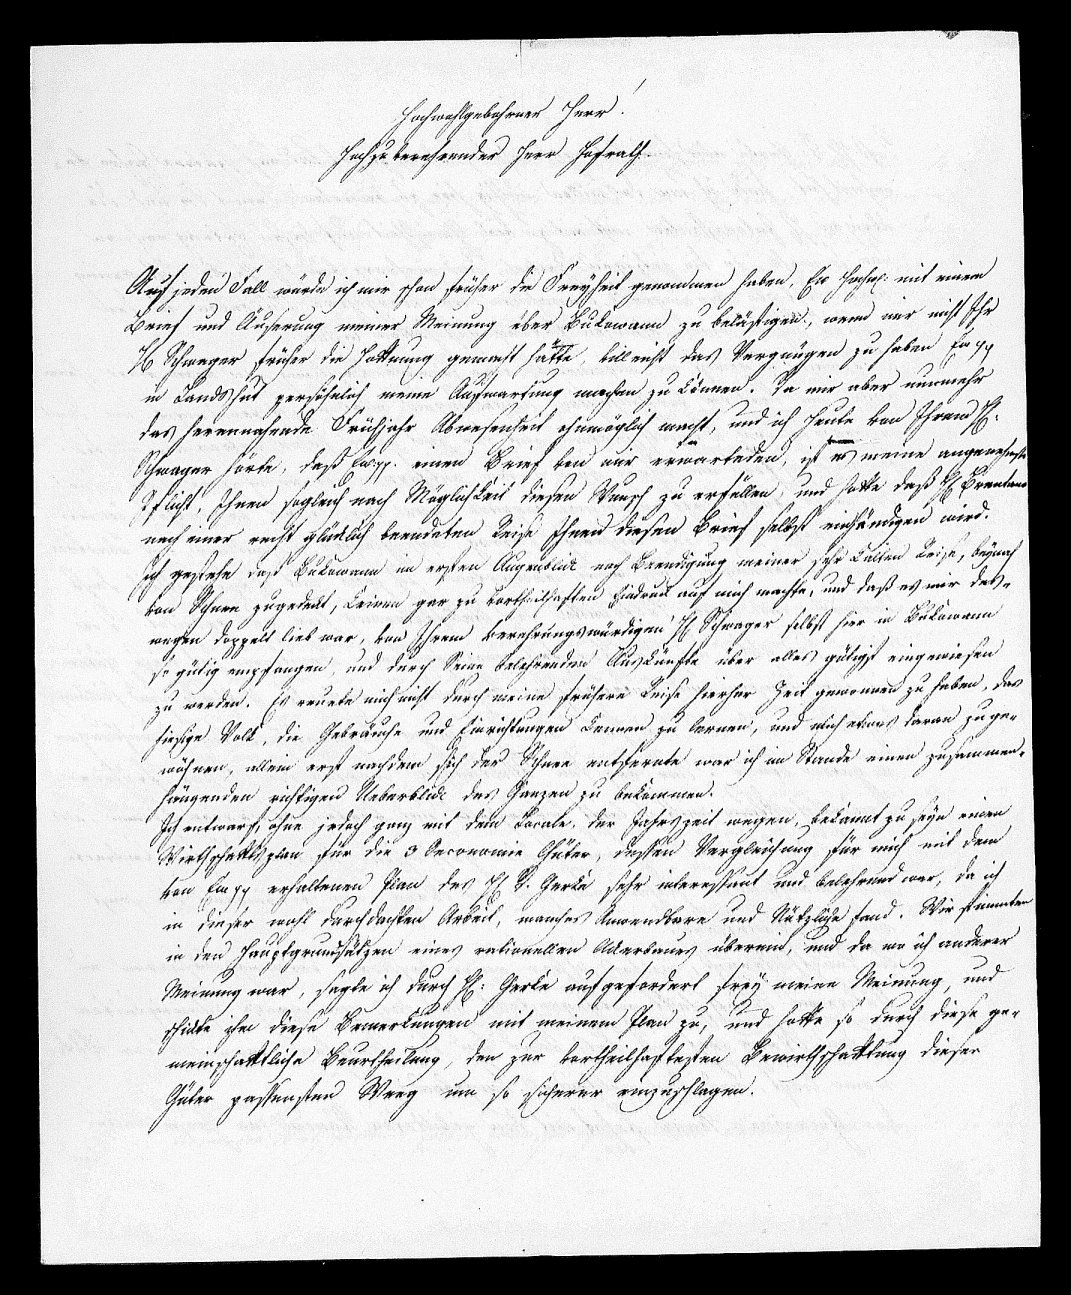 Hochwohlgebohrner Herr!
Hochzuverehrender Herr Hofrath
Auf jeden Fall würde ich mir schon früher die Freyheit genommen haben, Ew Hochw: mit einem
Brief und Äuserung meiner Meinung über Bukowann zu belästigen, wenn mir nicht Ihr
H Schwager früher die Hoffnung gemacht hätte, villeicht das Vergnügen zu haben Ew pp
in Landshut persöhnlich meine Aufwartung machen zu können. Da mir aber nunmehr
das herannahende Frühjahr Abwesenheit ohnmöglich macht, und ich heute von Ihrem H:
Schwager hörte, daß Ew pp. einen Brief von mir erwarteden, ist es meine angenehmste
Pflicht, Ihnen sogleich nach Möglichkeit diesen Wunsch zu erfüllen, und hoffe daß H Brentano
nach einer recht glücklich beendeten Reise Ihnen diesen Brief selbst einhändigen wird.
Ich gestehe daß Bukowann im ersten Augenblick nach Beendigung meiner sehr kalten Reise, beynah
von Schnee zugedekt, keinen gar zu vortheilhaften Eindruck auf mich machte, und daß es mir des-
wegen doppelt lieb war, von Ihrem verehrungswürdigen H Schwager selbst hier in Bukowann
so gütig empfangen, und durch Seine belehrenden Auskünfte über alles gütigst eingewiesen
zu werden. Es reuete mich nicht durch meine frühere Reise hierher Zeit gewonnen zu haben, das
hiesige Volk, die Gebräuche und Einrichtungen kennen zu lernen, und mich etwas daran zu ge-
wöhnen, allein erst nachdem sich der Schnee entfernte war ich im Stande einen zusammen-
hängenden richtigen Ueberblick des Ganzen zu bekommen.
Ich entwarf, ohne jedoch ganz mit dem Locale, der Jahrszeit wegen, bekannt zu seyn einen
Wirthschaftsplan für die 3 Oeconomie Güter, dessen Vergleichung für mich mit dem
von Ew pp erhaltenen Plan des H D. Gerke sehr interessant und belehrend war, da ich
in dieser wohl durchdachten Arbeit, manches Anwendbare und Nützliche fand. Wir stimmten
in den Hauptgrundsätzen eines rationellen Akerbaues überein, und da wo ich anderer
Meinung war, sagte ich durch H: Gerke aufgefordert frey meine Meinung, und
schickte ihm diese Bemerkungen mit meinem Plan zu, und hoffe so durch diese ge-
meinschaftliche Beurtheilung, den zur vortheilhaftesten Bewirthschaftung dieser
Güter passensten Weeg um so sicherer einzuschlagen.